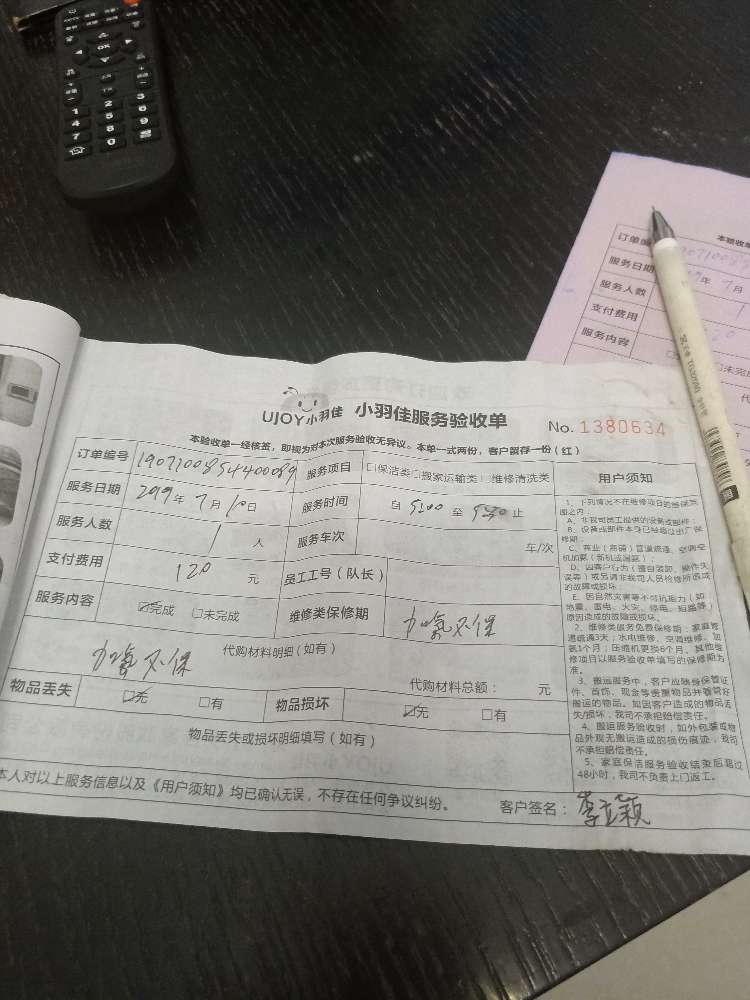 UJOY小羽佳 小羽佳服务验收单 No. 1380634
本验收单一经核签，即视为对本次服务验收无异议。本单一式两份，客户留存一份（红）
订单编号 服务项目 □保洁类□搬家运输类□维修清洗类
服务日期 2019年7月10日 服务时间 自 至 止
服务人数 1 人 服务车次 车/次
支付费用 120 元 员工工号（队长）
服务内容 ☑完成 □未完成 维修类保修期 加氟不保
代购材料明细（如有）
加氟不保
代购材料总额： 元
物品丢失 ☑无 □有 物品损坏 ☑无 □有
物品丢失或损坏明细填写（如有）
本人对以上服务信息以及《用户须知》均已确认无误，不存在任何争议纠纷。
客户签名：李立颖
用户须知
1、下列情况不在维修项目的质保范
围之内：
A、非我司员工提供的设备或部件；
B、设备或部件本身已经超过出厂保
修期；
C、商业（店铺）管道疏通、空调空
机加氟（新机或漏氟）；
D、因客户行为（擅自装卸、操作失
误等）或另请非我司人员检修所造成
的故障或损坏；
E、因自然灾害等不可抗能力（如
地震、雷电、火灾、停电、短路等）
原因造成的故障或损坏。
2、维修类服务免费保修期：家庭管
道疏通3天；水电维修、空调维修、加
氟1个月；压缩机更换6个月。其他维
修项目以服务验收单填写的保修期为
准。
3、搬运服务中，客户应随身保管证
件、首饰、现金等贵重物品并看管好
搬运的物品。如因客户造成的物品丢
失/损坏，我司不承担赔偿责任。
4、搬运服务验收时，如外包装或物
品外观无搬运造成的损伤痕迹，我司
不承担赔偿责任。
5、家庭保洁服务验收结束后超过
48小时，我司不负责上门返工。
本验收单
订单编
服务日期 年7月
服务人数 1
支付费用
服务内容 □未完成
OK
1 2 3
4 5 6
7 8 9
0